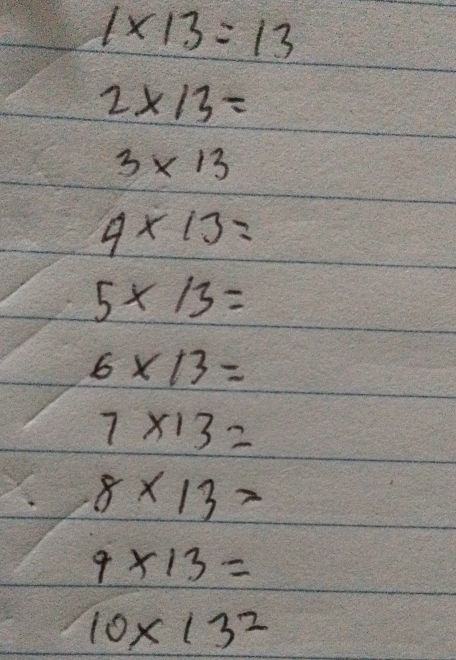 1 × 13 = 13
2 × 13 =
3 × 13
4 × 13 =
5 × 13 =
6 × 13 =
7 × 13 =
8 × 13 =
9 × 13 =
10 × 13 =